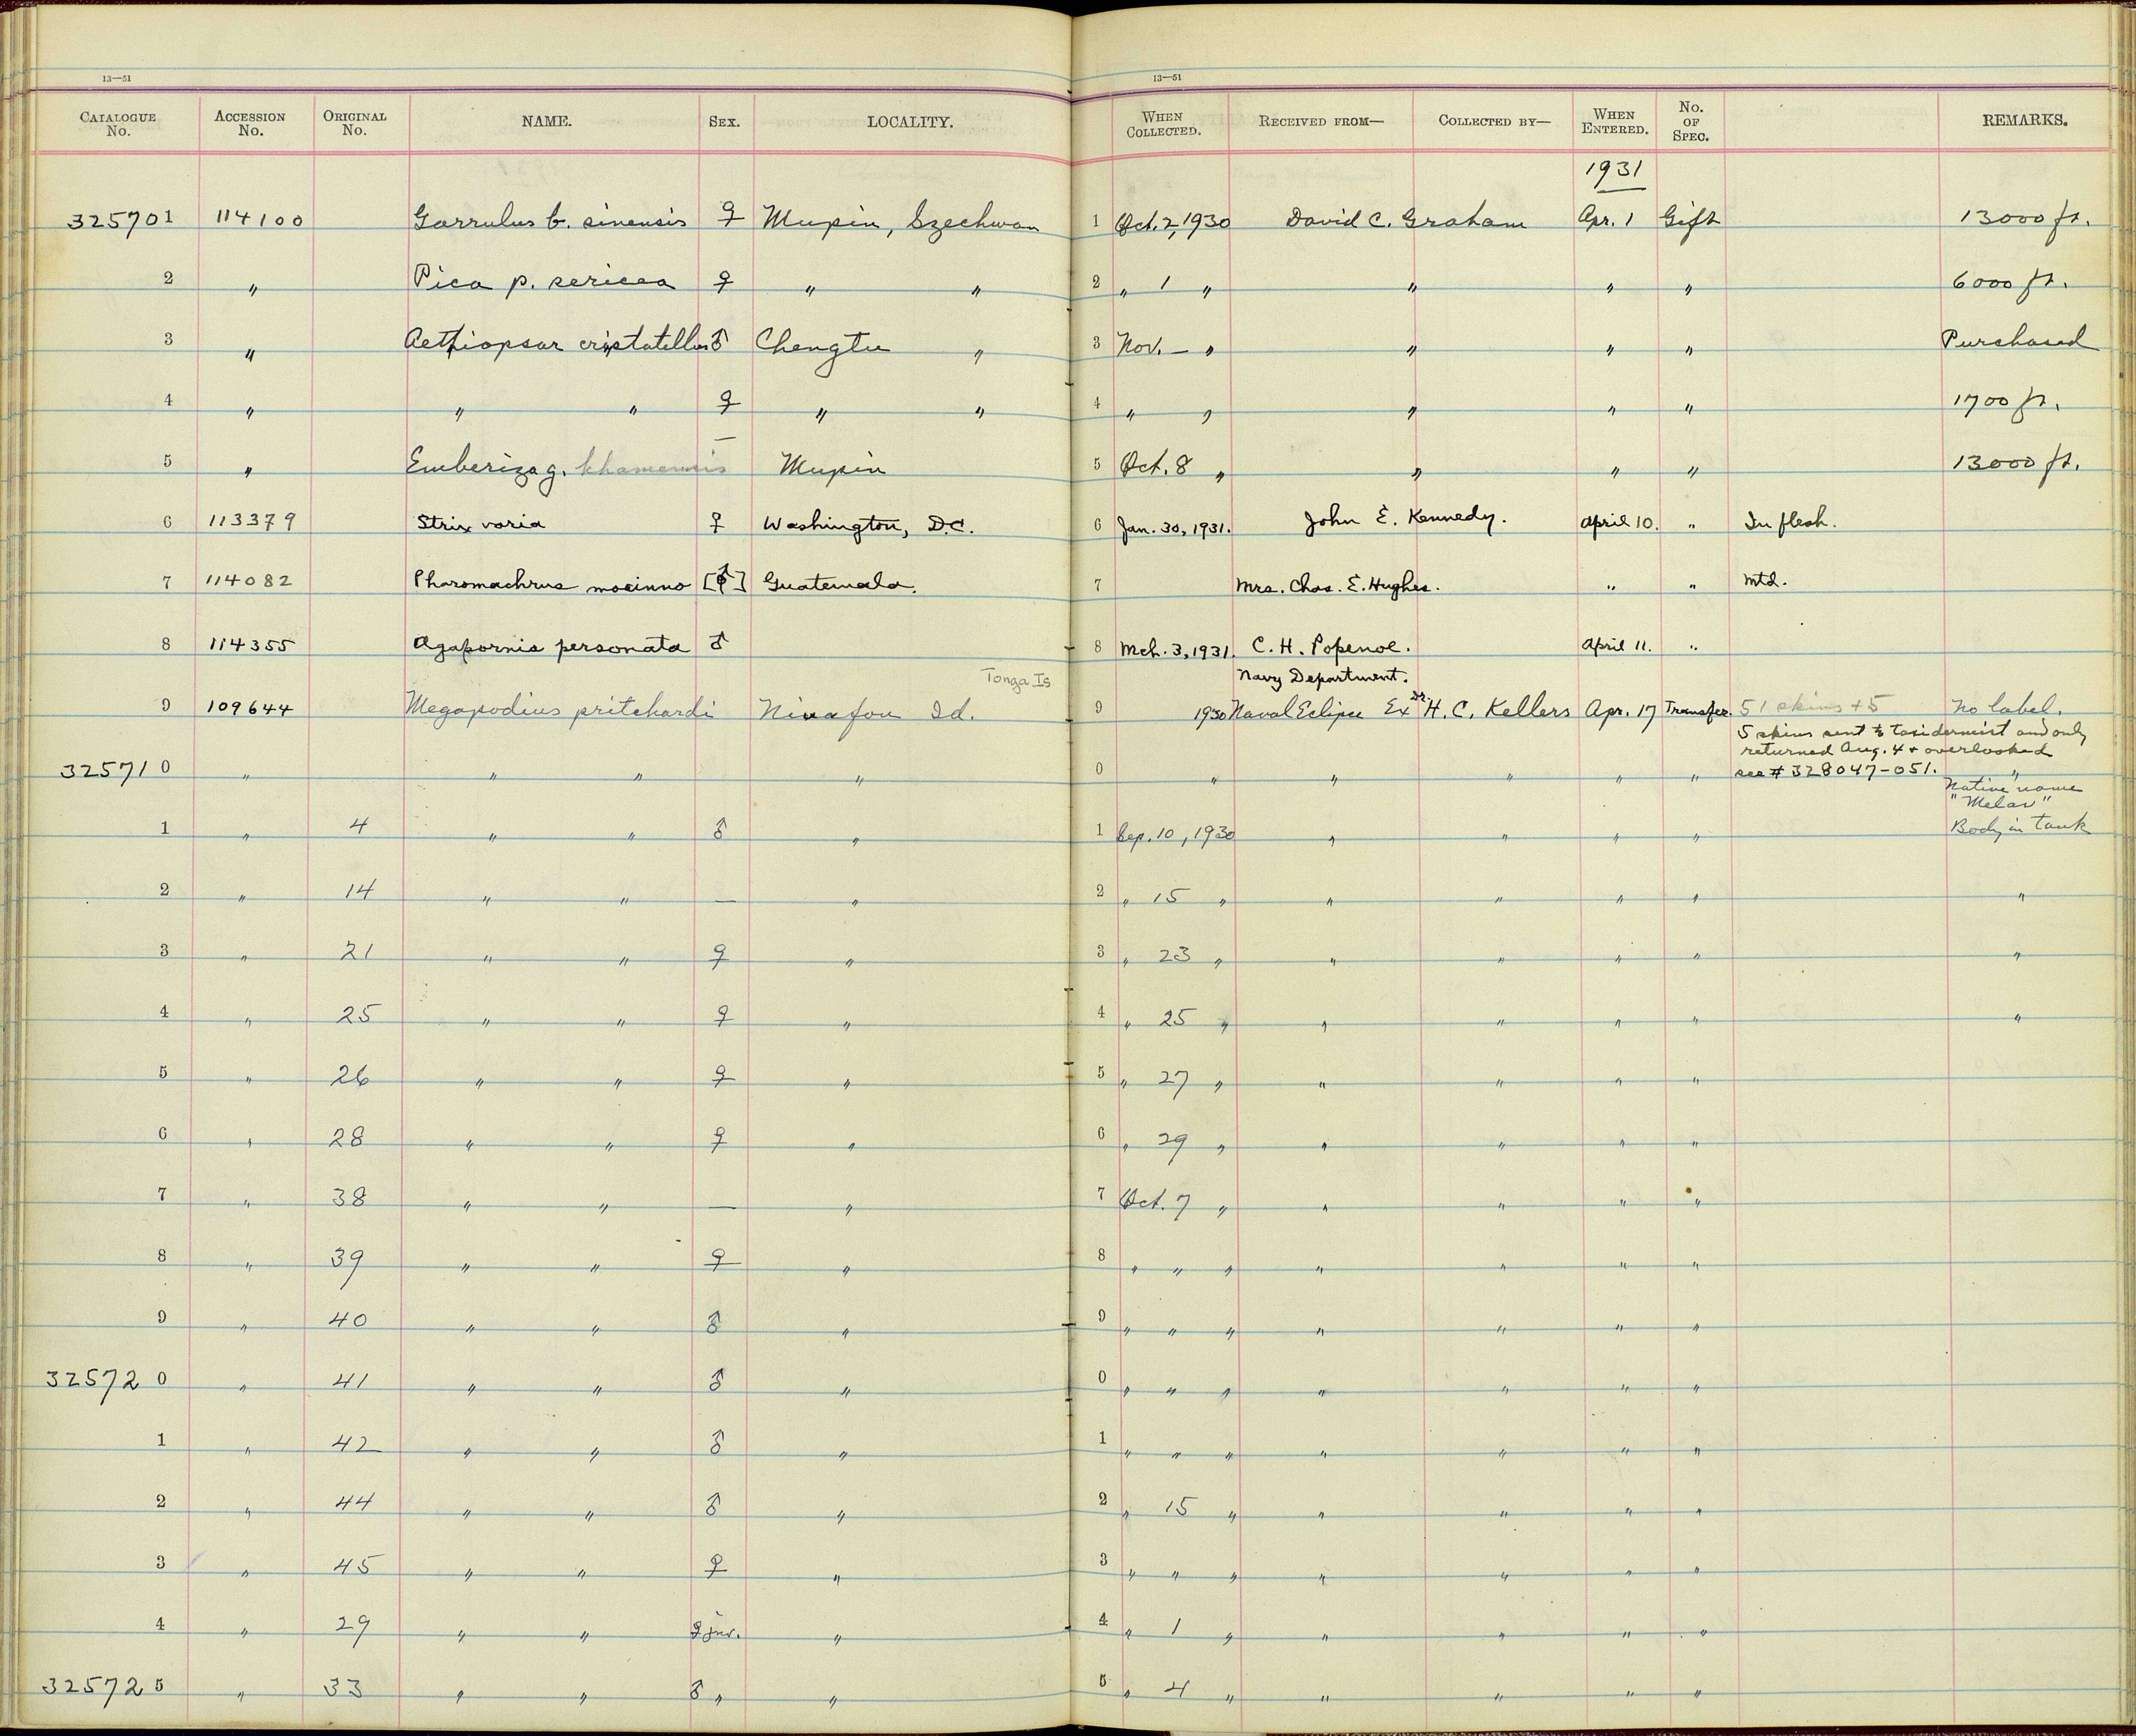 13—51 13—51
CATALOGUE No. ACCESSION No. ORIGINAL No. NAME. SEX. LOCALITY. WHEN COLLECTED. RECEIVED FROM— COLLECTED BY— WHEN ENTERED. No. OF SPEC. REMARKS.
1931
325701 114100 Garrulus b. sinensis ♀ Mupin, Szechwan 1 Oct. 2, 1930 David C. Graham Apr. 1 Gift 13000 ft.
2 " Pica p. sericea ♀ " " 2 " 1 " " " " 6000 ft.
3 " Aethiopsar cristatellus ♂ Chengtu " 3 Nov. — " " " " Purchased
4 " " " ♀ " " 4 " " " " " 1700 ft.
5 " Emberiza g. khamensis — Mupin 5 Oct. 8 " " " " 13000 ft.
6 113379 Strix varia ♀ Washington, D.C. 6 Jan. 30, 1931. John E. Kennedy. April 10. " In flesh.
7 114082 Pharomachrus mocinno [♂] Guatemala. 7 Mrs. Chas. E. Hughes. " " Mtd.
8 114355 Agapornis personata ♂ 8 Mch. 3, 1931. C. H. Popenoe. April 11. "
Tonga Is Navy Department.
9 109644 Megapodius pritchardi Niuafou Id. 9 1930 Naval Eclipse Ex Dr. H. C. Kellers Apr. 17 Transfer. 51 skins + 5 No label.
5 skins sent to taxidermist and only
returned Aug. 4 + overlooked
see # 328047-051.
325710 " " " " 0 " " " " " "
Native name
"Melau"
1 " 4 " " ♂ " 1 Sep. 10, 1930 " " " " Body in tank
2 " 14 " " — " 2 " 15 " " " " " "
3 " 21 " " ♀ " 3 " 23 " " " " " "
4 " 25 " " ♀ " 4 " 25 " " " " " "
5 " 26 " " ♀ " 5 " 27 " " " " "
6 " 28 " " ♀ " 6 " 29 " " " " "
7 " 38 " " — " 7 Oct. 7 " " " " "
8 " 39 " " ♀ " 8 " " " " " " "
9 " 40 " " ♂ " 9 " " " " " " "
325720 " 41 " " ♂ " 0 " " " " " " "
1 " 42 " " ♂ " 1 " " " " " " "
2 " 44 " " ♂ " 2 " 15 " " " " "
3 " 45 " " ♀ " 3 " " " " " " "
4 " 29 " " ♀ juv. " 4 " 1 " " " " "
325725 " 33 " " ♂ " " 5 " 4 " " " " "